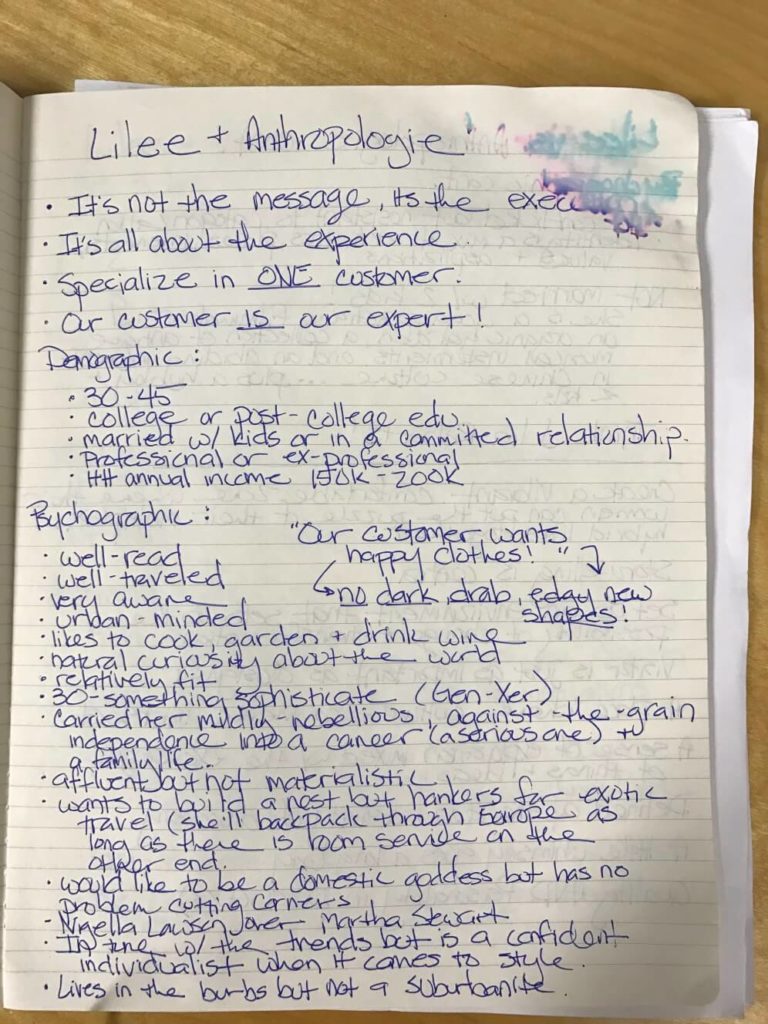 Lilee + Anthropologie
· It's not the message, its the
· It's all about the experience.
· Specialize in ONE customer.
· Our customer IS our expert!
Demographic:
· 30-45
· college or post-college edu.
· married w/ kids or in a committed relationship.
· Professional or ex-professional
· HH annual income 150k-200k
Psychographic:
"Our customer wants
happy clothes!"
no dark, drab, edgy new
shapes!
· well-read
· well-traveled
· very aware
· urban-minded
· likes to cook, garden + drink wine
· natural curiosity about the world
· relatively fit
· 30-something sophisticate (Gen-Xer)
· carried her mildly-rebellious, against-the-grain
independence into a career (a serious one) +
a family life.
· affluent but not materialistic
· wants to build a nest but hankers for exotic
travel (she'll backpack through Europe as
long as there is room service on the
other end.
· would like to be a domestic goddess but has no
problem cutting corners
- Nigella Lawson over Martha Stewart
· In tune w/ the trends but is a confident
individualist when it comes to style.
· Lives in the burbs but not a suburbanite.